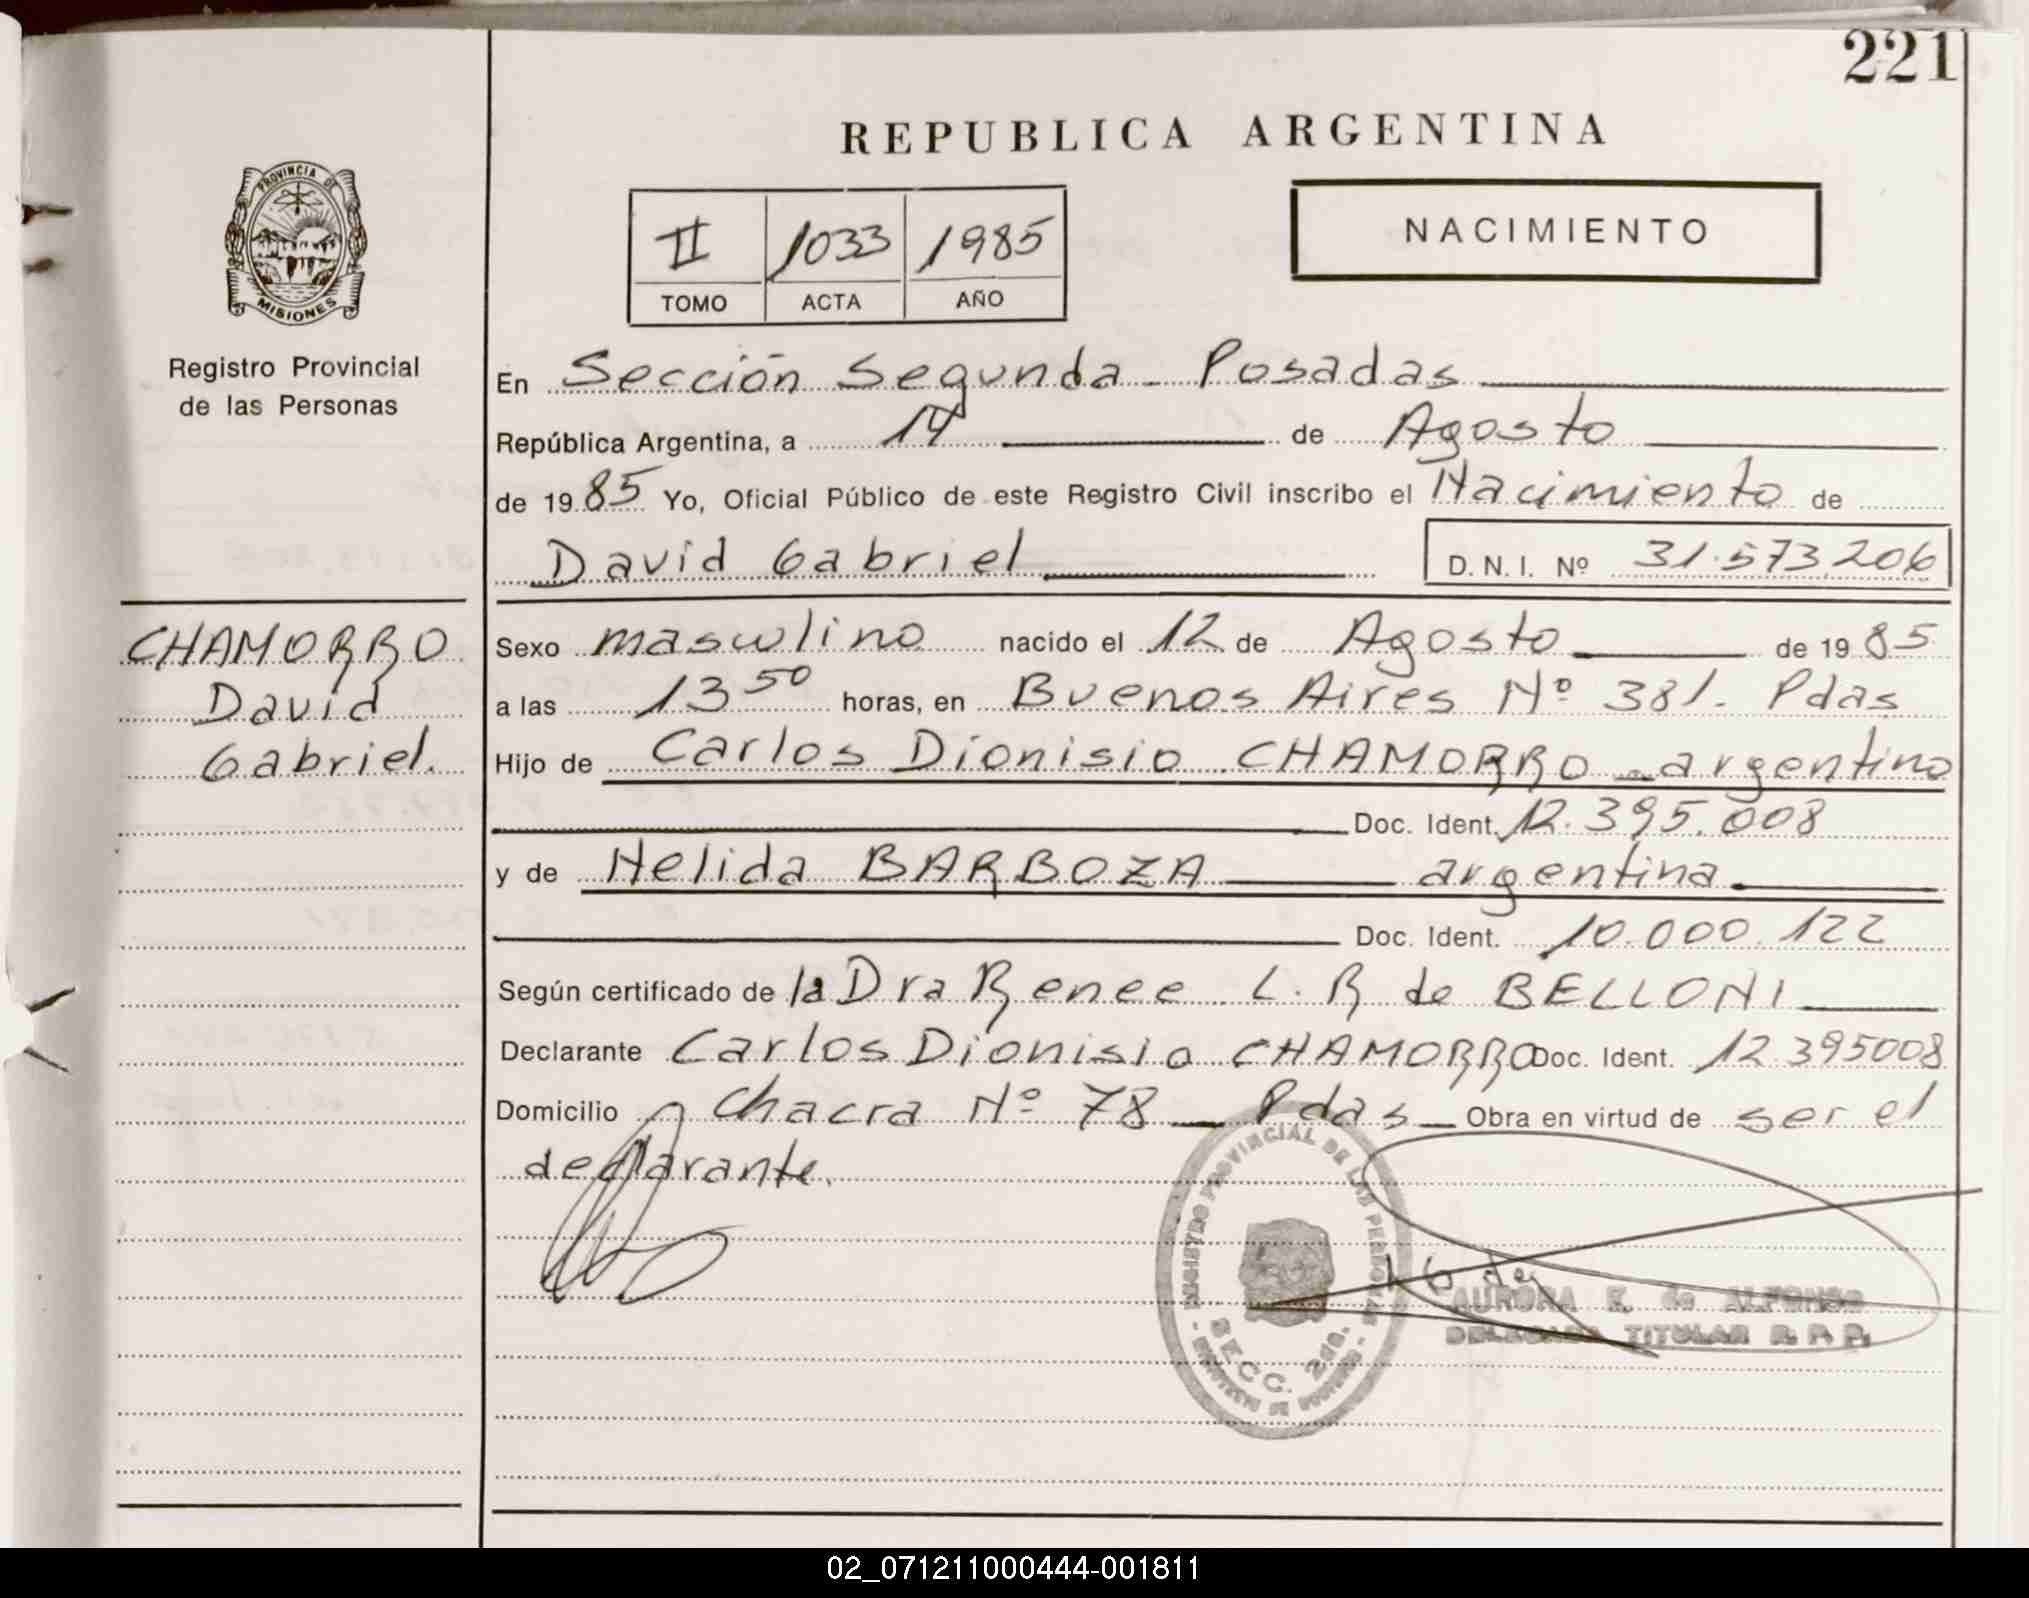 221
REPUBLICA ARGENTINA
PROVINCIA DE
MISIONES
Registro Provincial
de las Personas
II 1033 1985
TOMO ACTA AÑO
NACIMIENTO
En Sección Segunda - Posadas
República Argentina, a 14 de Agosto
de 1985 Yo, Oficial Público de este Registro Civil inscribo el Nacimiento de
David Gabriel D. N. I. Nº 31.573.206
CHAMORRO
David
Gabriel.
Sexo masculino nacido el 12 de Agosto de 1985
a las 13 50 horas, en Buenos Aires Nº 381. Pdas
Hijo de Carlos Dionisio CHAMORRO - argentino
Doc. Ident. 12.395.008
y de Nelida BARBOZA argentina
Doc. Ident. 10.000.122
Según certificado de la Dra Renee L. R de BELLONI
Declarante Carlos Dionisio CHAMORRO Doc. Ident. 12.395008
Domicilio Chacra Nº 78 - Pdas - Obra en virtud de ser el
declarante.
REGISTRO PROVINCIAL DE LAS PERSONAS
SECC. 2da.
AURORA E. de ALFONSO
DELEGADA TITULAR R. P. P.
02_071211000444-001811